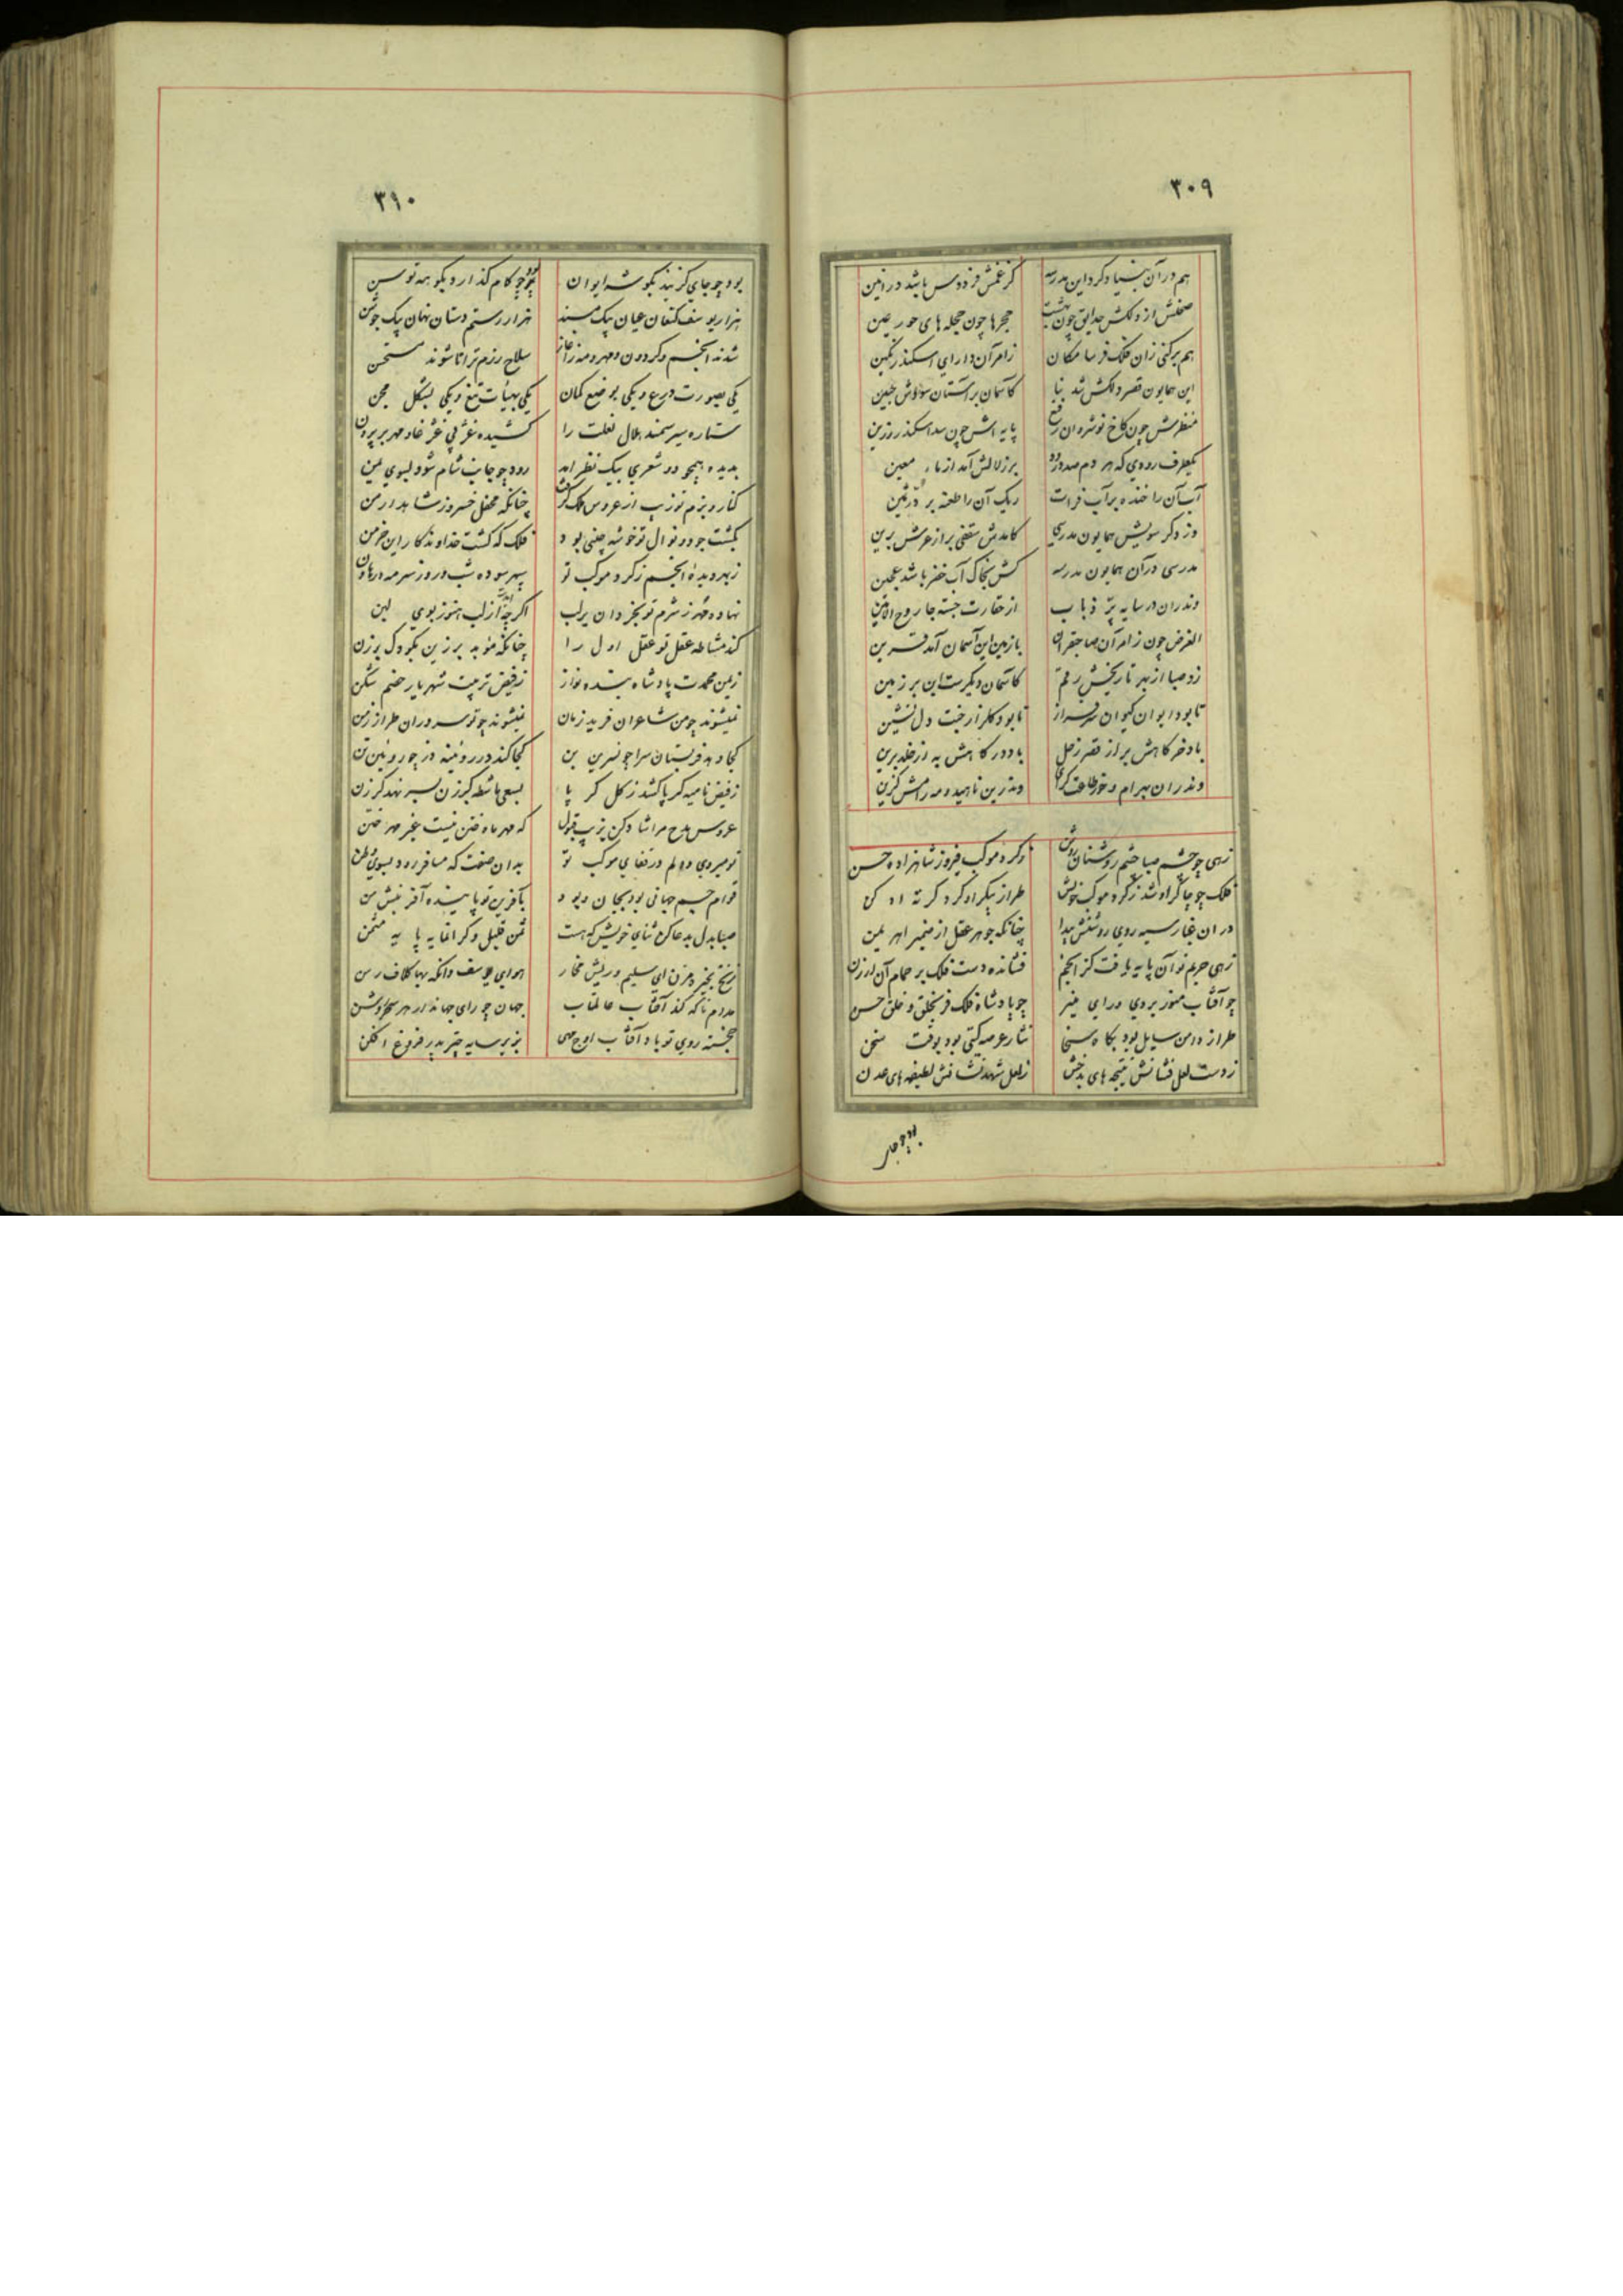 ۳۰۹
هم در آن بنیاد کرد این مدرسه
کز غمش فردوس باشد در انین
صحنش از دلکش حدایق چون بهشت
حجرها چون حجله های حور عین
هم برکنی زان فلک فرسا مکان
زامر آن دارای اسکندر نکین
این همایون قصر دلکش شد بنا
کاسمان بر آستان سودش جبین
منظرش چون کاخ نوشروان رفیع
پایه اش چون سد اسکندر رزین
یکطرف رودی که هر دم صد درود
بر زلالش آمد از ماء معین
آب آن را خنده بر آب فرات
ریک آن را طعنه بر در ثمین
وز دکر سویش همایون مدرسی
کامدش سقفی بر از عرش برین
مدرسی در آن همایون مدرسه
کش بخاک آب خضر باشد عجین
وندران در سایه پر ذباب
از حقارت جسته جا روح الامین
الغرض چون زامر آن صاحبقران
بازمین این آسمان آمد قرین
زد صبا از بهر تاریخش رقم
کاسمان دیکرست این بر زمین
تا بود ایوان کیوان سرفراز
تا بود کلزار جنت دل نشین
باد خرکاهش بر از قصر زحل
باد درکاهش به از خلد برین
وندران بهرام و خور طاعت کرای
وندرین ناهید و مه رامش کزین
زهی چو چشم صبا چشم روشنان روشن
ز کرد موکب فیروز شاهزاده حسن
فلک چو چاکر او شد ز کرد موکب خویش
طراز پیکر او کرد کرته اد کن
در ان غبار سیه روی روشنش پیدا
چنانکه جوهر عقل از ضمیر اهریمن
زهی حریم تو آن پایه یافت کز انجم
فشانده دست فلک بر حمام آن ارزن
چو آفتاب منور بروی و رای منیر
چو پادشاه فلک فر بخلق و خلق حسن
طراز دامن سایل بود بکاه سخا
نثار عرصه کیتی بود بوقت سخن
ز دست لعل فشانش نتیجه های بدخش
ز لعل شهد نشانش لطیفه های عدن
بود چو جای
۳۱۰
بود چو جای کزیند بکوشه ایوان
بود چو کام کذارد بکوهه توسن
هزار یوسف کنعان عیان بیک مسند
هزار رستم دستان نهان بیک جوشن
شدند انجم و کردون و مهر و مه ز آغاز
سلاح رزم ترا تا شوند مستحسن
یکی بصورت درع و یکی بوضع کمان
یکی بهیأت تیغ و یکی بشکل مجن
ستاره سیر سمند هلال نعلت را
بدیده همچو دو شعری بیک نظر آمد
رود چو جانب شام شود بسوی یمن
کنار و بزم تو زیب از عروس ملک کرفت
چنانکه محفل خسرو ز شاهد ارمن
بکشت جود و نوال تو خوشه چینی بود
فلک که کشت خداوندکار این خرمن
ز بهر دیده انجم ز کرد موکب تو
سپهر سوده شب و روز سرمه در هاون
نهاده مهر ز شرم تو بخردان بر لب
اکرچه آیدت از لب هنوز بوی لبن
کند مشاطه عقل تو عقل اول را
چنانکه موبد برزین بکودک برزن
زمین محمدت پادشاه بنده نواز
ز فیض تربیت شهریار خصم شکن
نمیشوند چو من شاعران فرید زمان
نمیشوند چو تو سروران طراز زمن
کجا دهد فر بستان سرا چو نسرین بن
کجا کند در روئینه دز چو روئین تن
ز فیض نامیه کر پا کشد ز کل کر پا
بسعی ماشطه کرزن بسر نهد کرزن
عروس مدح مرا شاد کن بزیب قبول
که مهر ماه ختن نیست غیر مهر ختن
تو میروی و دلم در قفای موکب تو
بدان صفت که مسافر رود بسوی وطن
قوام جسم جهانی بود بجان و بود
بآفرین تو پاینده آفرینش من
صبا بدل بدعا کن ثنای خویش که هست
ثمن قلیل و کرانمایه پایه مثمن
هوای یوسف وانکه بها کلاف رسن
مدام تا که کند آفتاب عالمتاب
جهان چو رای جهاندار هر سحر روشن
خجسته روی تو باد آفتاب اوج مهی
بزیر سایه چتر پدر فروغ افکن